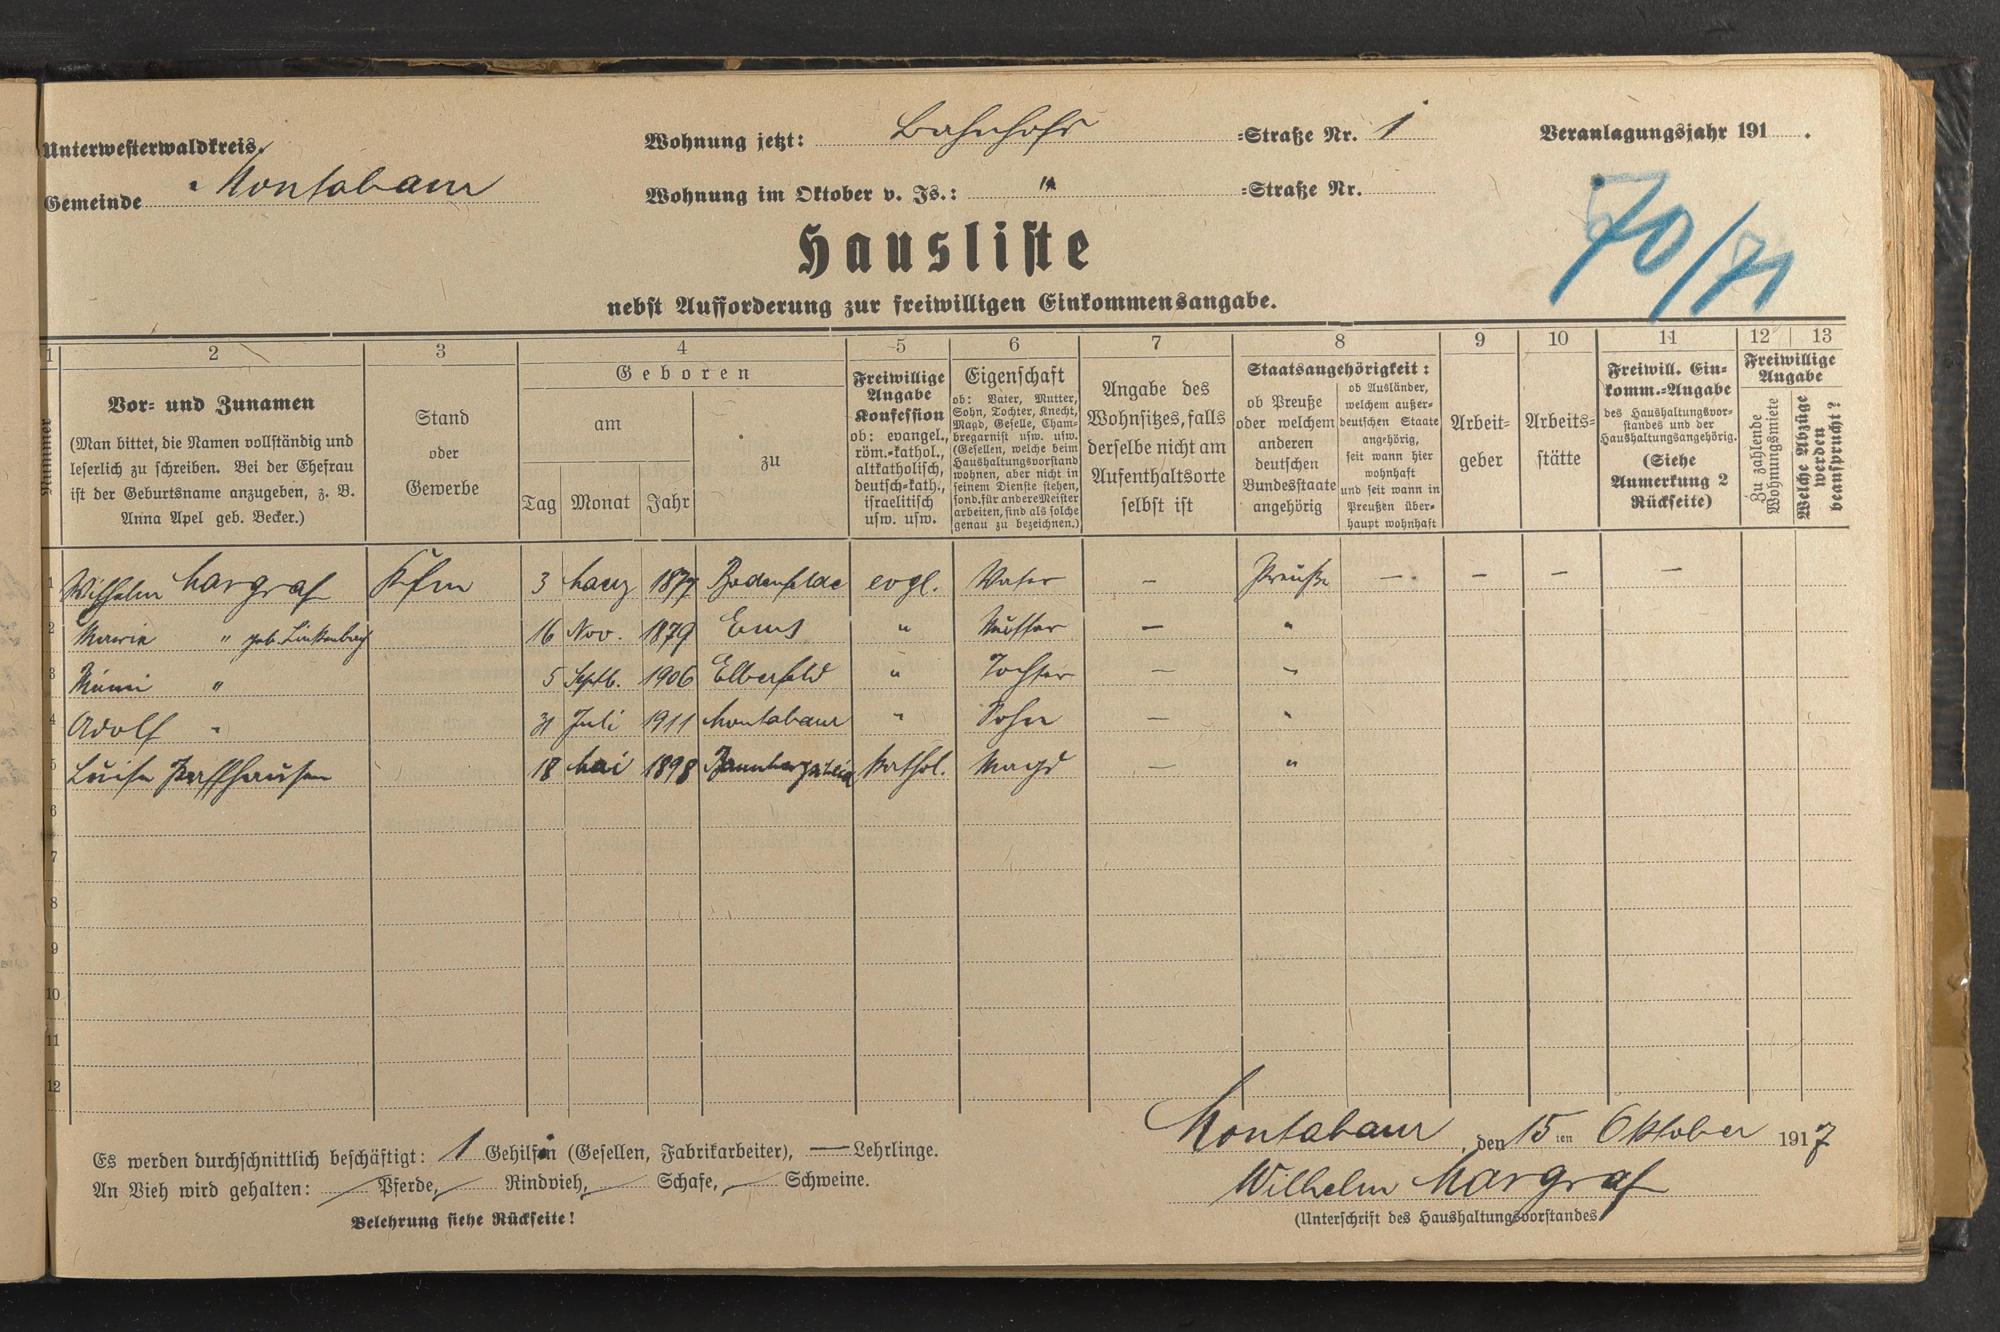 Unterwesterwaldkreis.
Gemeinde Montabaur
Wohnung jetzt: Bahnhofs =Straße Nr. 1
Wohnung im Oktober v. Js.: " =Straße Nr.
Veranlagungsjahr 191 .
70/71
Hausliste
nebst Aufforderung zur freiwilligen Einkommensangabe.
1 2 3 4 5 6 7 8 9 10 11 12 13
Nummer
Vor= und Zunamen
(Man bittet, die Namen vollständig und
leserlich zu schreiben. Bei der Ehefrau
ist der Geburtsname anzugeben, z. B.
Anna Apel geb. Becker.)
Stand
oder
Gewerbe
Geboren
am
Tag Monat Jahr
zu
Freiwillige
Angabe
Konfession
ob: evangel.,
röm.=kathol.,
altkatholisch,
deutsch=kath.,
israelitisch
usw. usw.
Eigenschaft
ob: Vater, Mutter,
Sohn, Tochter, Knecht,
Magd, Geselle, Cham=
bregarnist usw. usw.
(Gesellen, welche beim
Haushaltungsvorstand
wohnen, aber nicht in
seinem Dienste stehen,
sond. für andere Meister
arbeiten, sind als solche
genau zu bezeichnen.)
Angabe des
Wohnsitzes, falls
derselbe nicht am
Aufenthaltsorte
selbst ist
Staatsangehörigkeit:
ob Preuße
oder welchem
anderen
deutschen
Bundesstaate
angehörig
ob Ausländer,
welchem außer=
deutschen Staate
angehörig,
seit wann hier
wohnhaft
und seit wann in
Preußen über=
haupt wohnhaft
Arbeit=
geber
Arbeits=
stätte
Freiwill. Ein=
komm.=Angabe
des Haushaltungsvor=
standes und der
Haushaltungsangehörig.
(Siehe
Anmerkung 2
Rückseite)
Freiwillige
Angabe
Zu zahlende
Wohnungsmiete
Welche Abzüge
werden
beansprucht?
1 Wilhelm Margraf Kfm 3 März 1877 Bodenfelde evgl. Vater — Preuße — — — —
2 Maria " geb. Linkenbach 16 Nov. 1879 Ems " Mutter — "
3 Mimi " 5 Septb. 1906 Elberfeld " Tochter — "
4 Adolf " 31 Juli 1911 Montabaur " Sohn — "
5 Luise 18 Mai 1898 kathol. Magd — "
6
7
8
9
10
11
12
Es werden durchschnittlich beschäftigt: 1 Gehilfin (Gesellen, Fabrikarbeiter), — Lehrlinge.
An Vieh wird gehalten: — Pferde, — Rindvieh, — Schafe, — Schweine.
Belehrung siehe Rückseite!
Montabaur, den 15ten Oktober 1917
Wilhelm Margraf
(Unterschrift des Haushaltungsvorstandes)